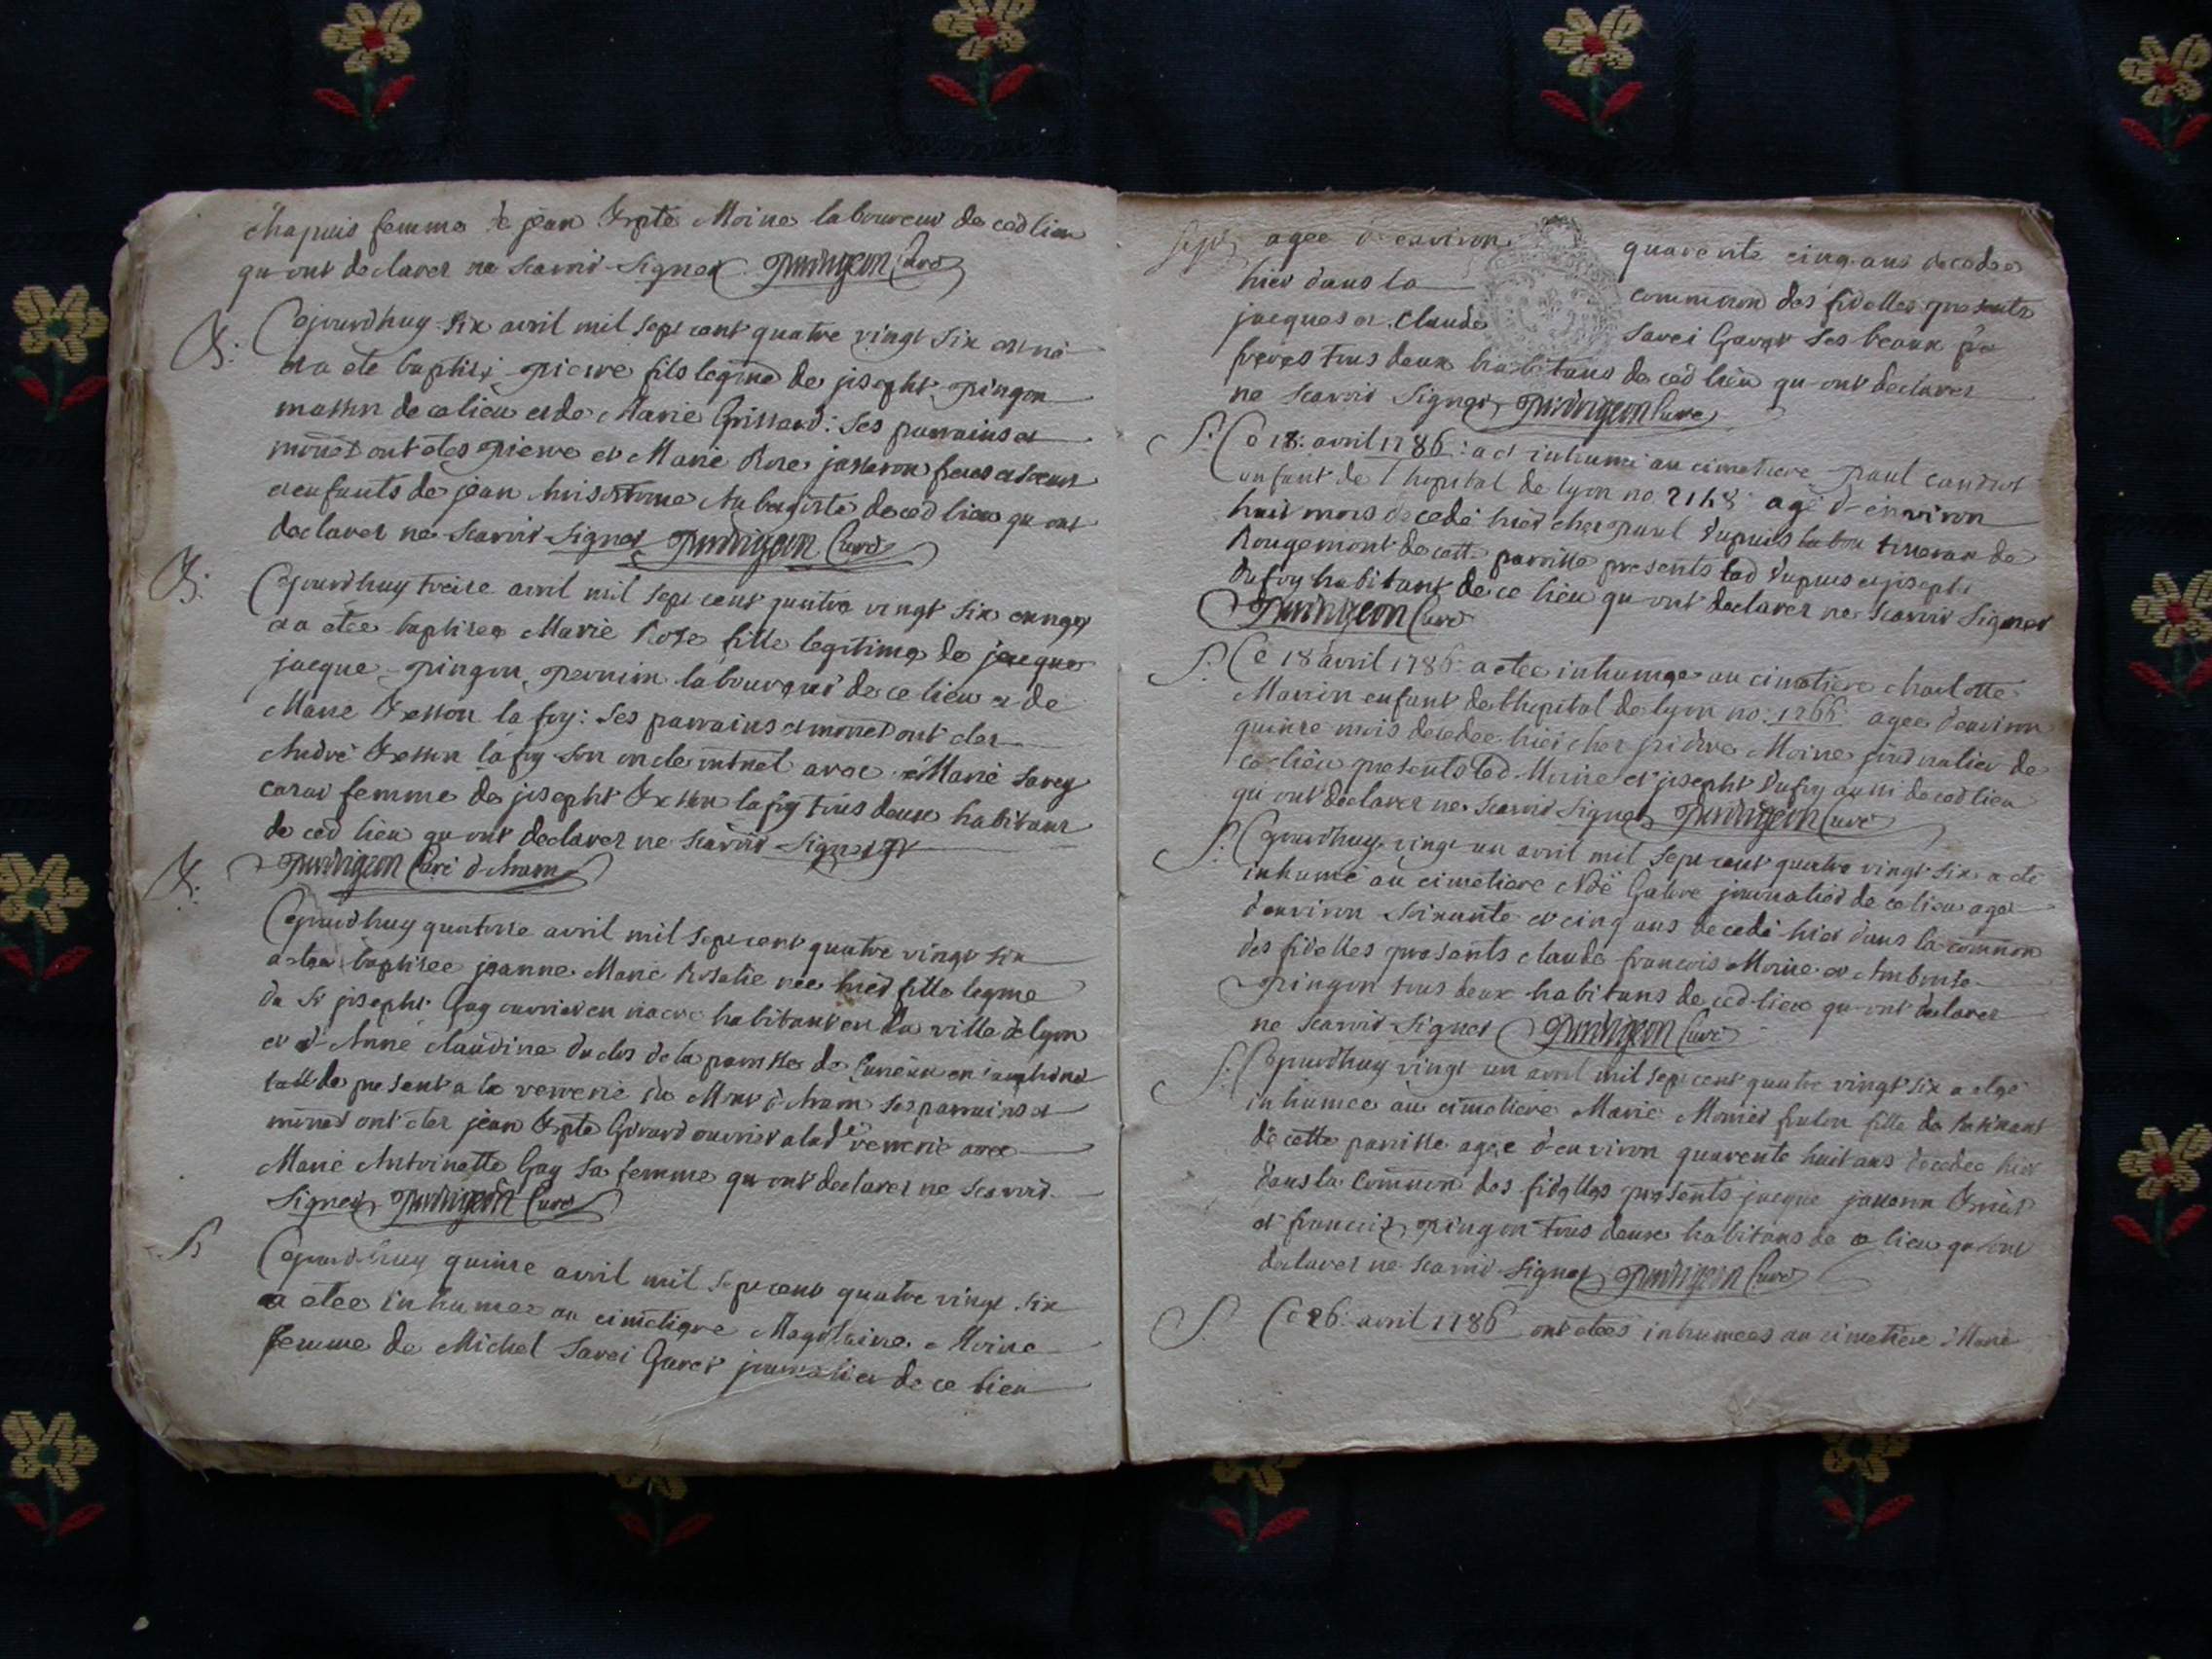 Chapuis femme de jean Bpte Moine laboureur de ced lieu
qu ont declarer ne scavoir signer Curé
B: Cejourdhuy six avril mil sept cent quatre vingt six est né
et a ete baptisé pierre fils legme de joseph pingon
masson de ce lieu et de Marie Grissard: ses parrains et
ont etes pierre et Marie Rose frere et soeur
et enfants de jean Aubergiste de ced lieu qu ont
declarer ne scavoir signer Curé
B: Cejourdhuy treise avril mil sept cent quatre vingt six
et a etee baptisee Marie Rose fille legitime de jacque
jacque pingon laboureur de ce lieu et de
Marie la foy: ses parrains et ont eter
André la foy son oncle avec Marie Savey
femme de joseph la foy tous deux habitans
de ced lieu qu ont declarer ne scavoir signer
Curé d
B: Cejourdhuy quatorse avril mil sept cent quatre vingt six
a etee baptisee jeanne Marie Rosalie née hier fille legme
du Sr joseph Gay ouvrier en habitant en la ville de lyon
et d Anne claudine duclos de la parroisse de
de present a la verrerie du Mont d ses parrains et
ont eter jean Bpte Girard ouvrier a lad verrerie avec
Marie Antoinette Gay sa femme qu ont declarer ne scavoir
signer Curé
S Cejourdhuy quinse avril mil sept cent quatre vingt six
a etee inhumee au cimetiere Magdelaine Moine
femme de Michel Savei Garet journalier de ce lieu
agee d environ quarente cinq ans decedee
hier dans la communion des fidelles presents
jacques et Claude Savei Garet ses beaux
freres tous deux habitans de ced lieu qu ont declarer
ne scavoir signer Curé
S: Ce 18: avril 1786: a et inhumé au cimetiere paul
enfant de l hopital de lyon no 2148 agé d environ
huit mois decedé hier ches paul dupuis tisseran de
Rougemont de cette parroisse presents led dupuis et joseph
dufoy habitant de ce lieu qu ont declarer ne scavoir signer
Curé
S: Ce 18 avril 1786: a etee inhumee au cimetiere charlotte
enfant de lhopital de lyon no: 1266 agee denviron
quinse mois decedee hier ches pierre Moine journalier de
ce lieu presents led. Moine et joseph dufoy aussi de ced lieu
qu ont declarer ne scavoir signer Curé
S: Cejourdhuy vingt un avril mil sept cent quatre vingt six a été
inhumé au cimetiere journalier de ce lieu agé
d environ soixante et cinq ans decedé hier dans la commion
des fidelles presents claude francois Moine et Ambroise
pingon tous deux habitans de ced lieu qu ont declarer
ne scavoir signer Curé
S: Cejourdhuy vingt un avril mil sept cent quatre vingt six a etée
inhumee au cimetiere Marie fille de
de cette parroisse agée d environ quarente huit ans decedee hier
dans la Commion des fidelles presents jacque
et francois pingon tous deux habitans de ce lieu qu ont
declarer ne scavoir signer Curé
S. Ce 26: avril 1786 ont etees inhumees au cimetiere Marie